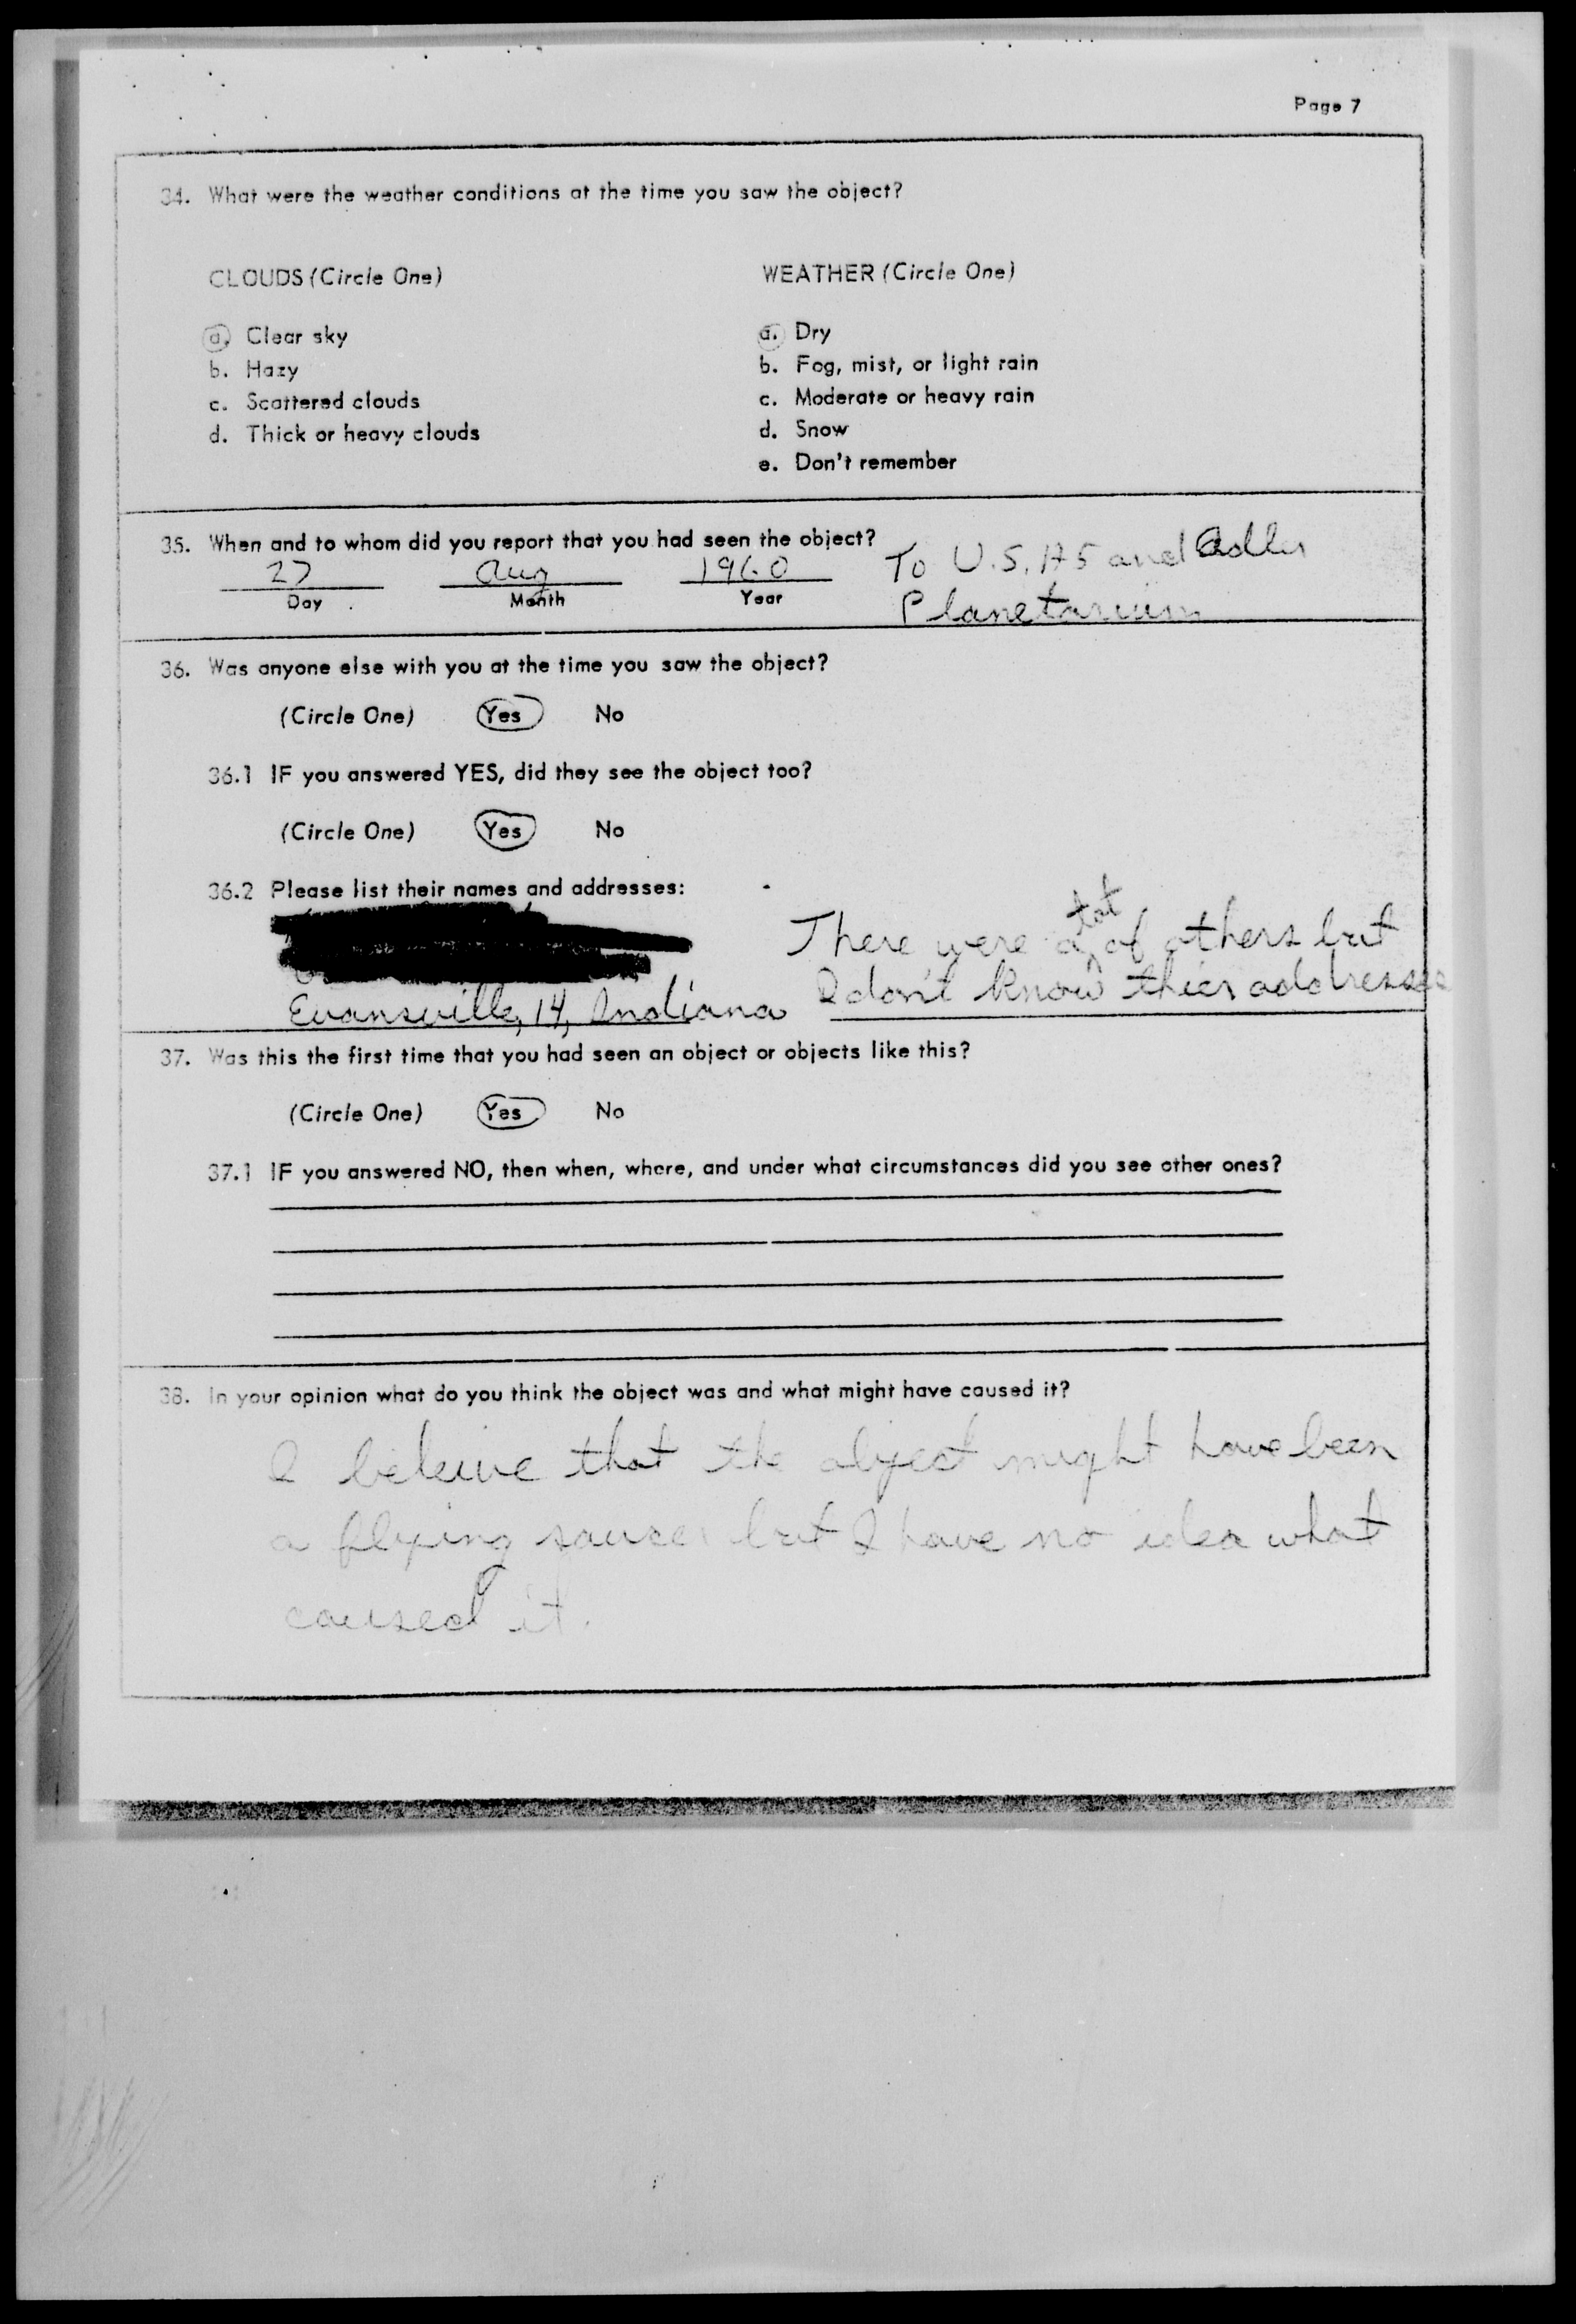 Page 7
34. What were the weather conditions at the time you saw the object?
CLOUDS (Circle One)
a. Clear sky
b. Hazy
c. Scattered clouds
d. Thick or heavy clouds
WEATHER (Circle One)
a. Dry
b. Fog, mist, or light rain
c. Moderate or heavy rain
d. Snow
e. Don't remember
35. When and to whom did you report that you had seen the object?
27 Aug 1960 To U.S. AF and Adler
Day Month Year Planetarium
36. Was anyone else with you at the time you saw the object?
(Circle One) Yes No
36.1 IF you answered YES, did they see the object too?
(Circle One) Yes No
36.2 Please list their names and addresses:
Evansville, 14, Indiana
There were a lot of others but
I don't know thier addresses
37. Was this the first time that you had seen an object or objects like this?
(Circle One) Yes No
37.1 IF you answered NO, then when, where, and under what circumstances did you see other ones?
38. In your opinion what do you think the object was and what might have caused it?
I beleive that the object might have been
a flying saucer but I have no idea what
caused it.